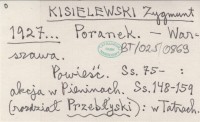 KISIELEWSKI Zygmunt
1927... Poranek. - War-
szawa.
BT/025/0869
Powieść. Ss. 75- :
akcja w Pieninach. Ss. 148-159
(rozdział Przebłyski): w Tatrach.